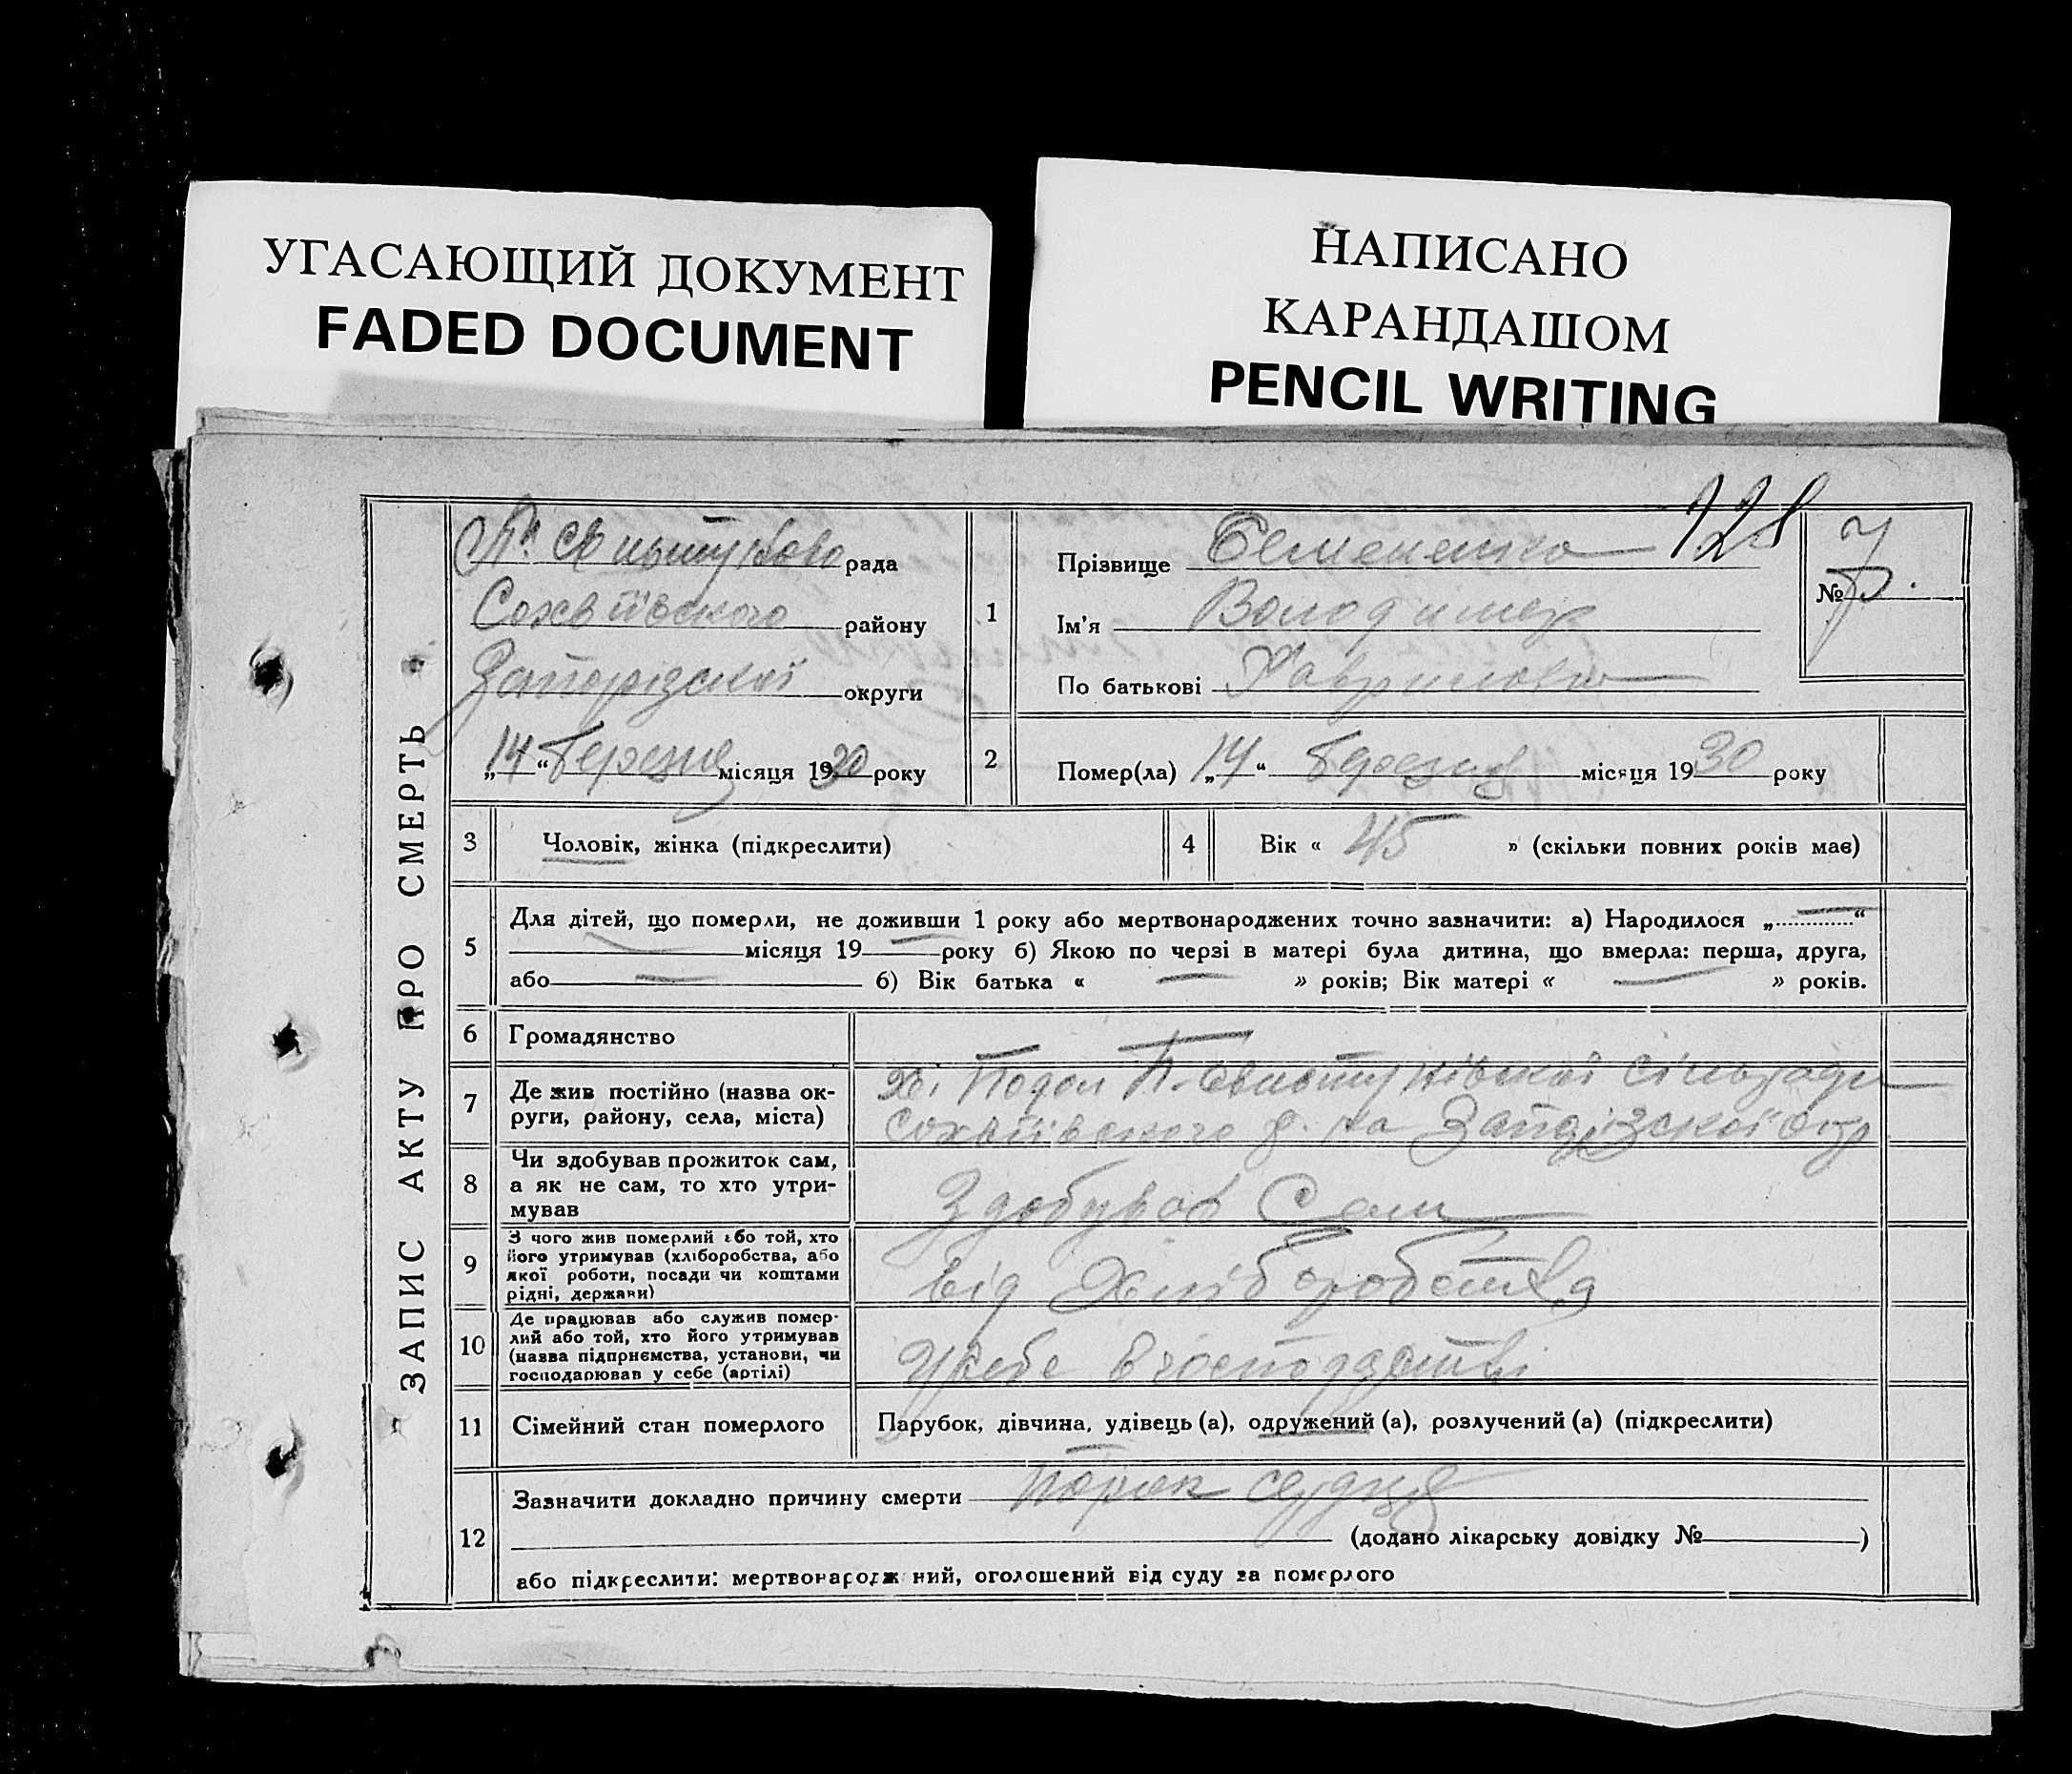 УГАСАЮЩИЙ ДОКУМЕНТ
FADED DOCUMENT
НАПИСАНО
КАРАНДАШОМ
PENCIL WRITING
ЗАПИС АКТУ ПРО СМЕРТЬ
рада
Софіївского району
Запорізскої округи
„14“ Березня місяця 1930 року
1
Прізвище Семененко 128
Ім'я Володимер
По батькові Гаврилович
№ 7
2
Помер(ла) „14“ Березня місяця 1930 року
3 Чоловік, жінка (підкреслити)
4 Вік « 45 » (скільки повних років має)
5
Для дітей, що померли, не доживши 1 року або мертвонароджених точно зазначити: а) Народилося „—“
— місяця 19— року б) Якою по черзі в матері була дитина, що вмерла: перша, друга,
або — б) Вік батька « — » років; Вік матері « — » років.
6 Громадянство —
7 Де жив постійно (назва ок-
руги, району, села, міста)
Подол Сільради
Софіївского р-на Запорізскої окр
8 Чи здобував прожиток сам,
а як не сам, то хто утри-
мував
Здобував Сам
9 З чого жив померлий або той, хто
його утримував (хліборобства, або
якої роботи, посади чи коштами
рідні, держави)
від Хліборобства
10 Де працював або служив помер-
лий або той, хто його утримував
(назва підпрнємства, установи, чи
господарював у себе (артілі)
У себе в господарстві
11 Сімейний стан померлого
Парубок, дівчина, удівець (а), одружений (а), розлучений (а) (підкреслити)
12
Зазначити докладно причину смерти Порок сердця
(додано лікарську довідку № )
або підкреслити: мертвонароджений, оголошений від суду за померлого